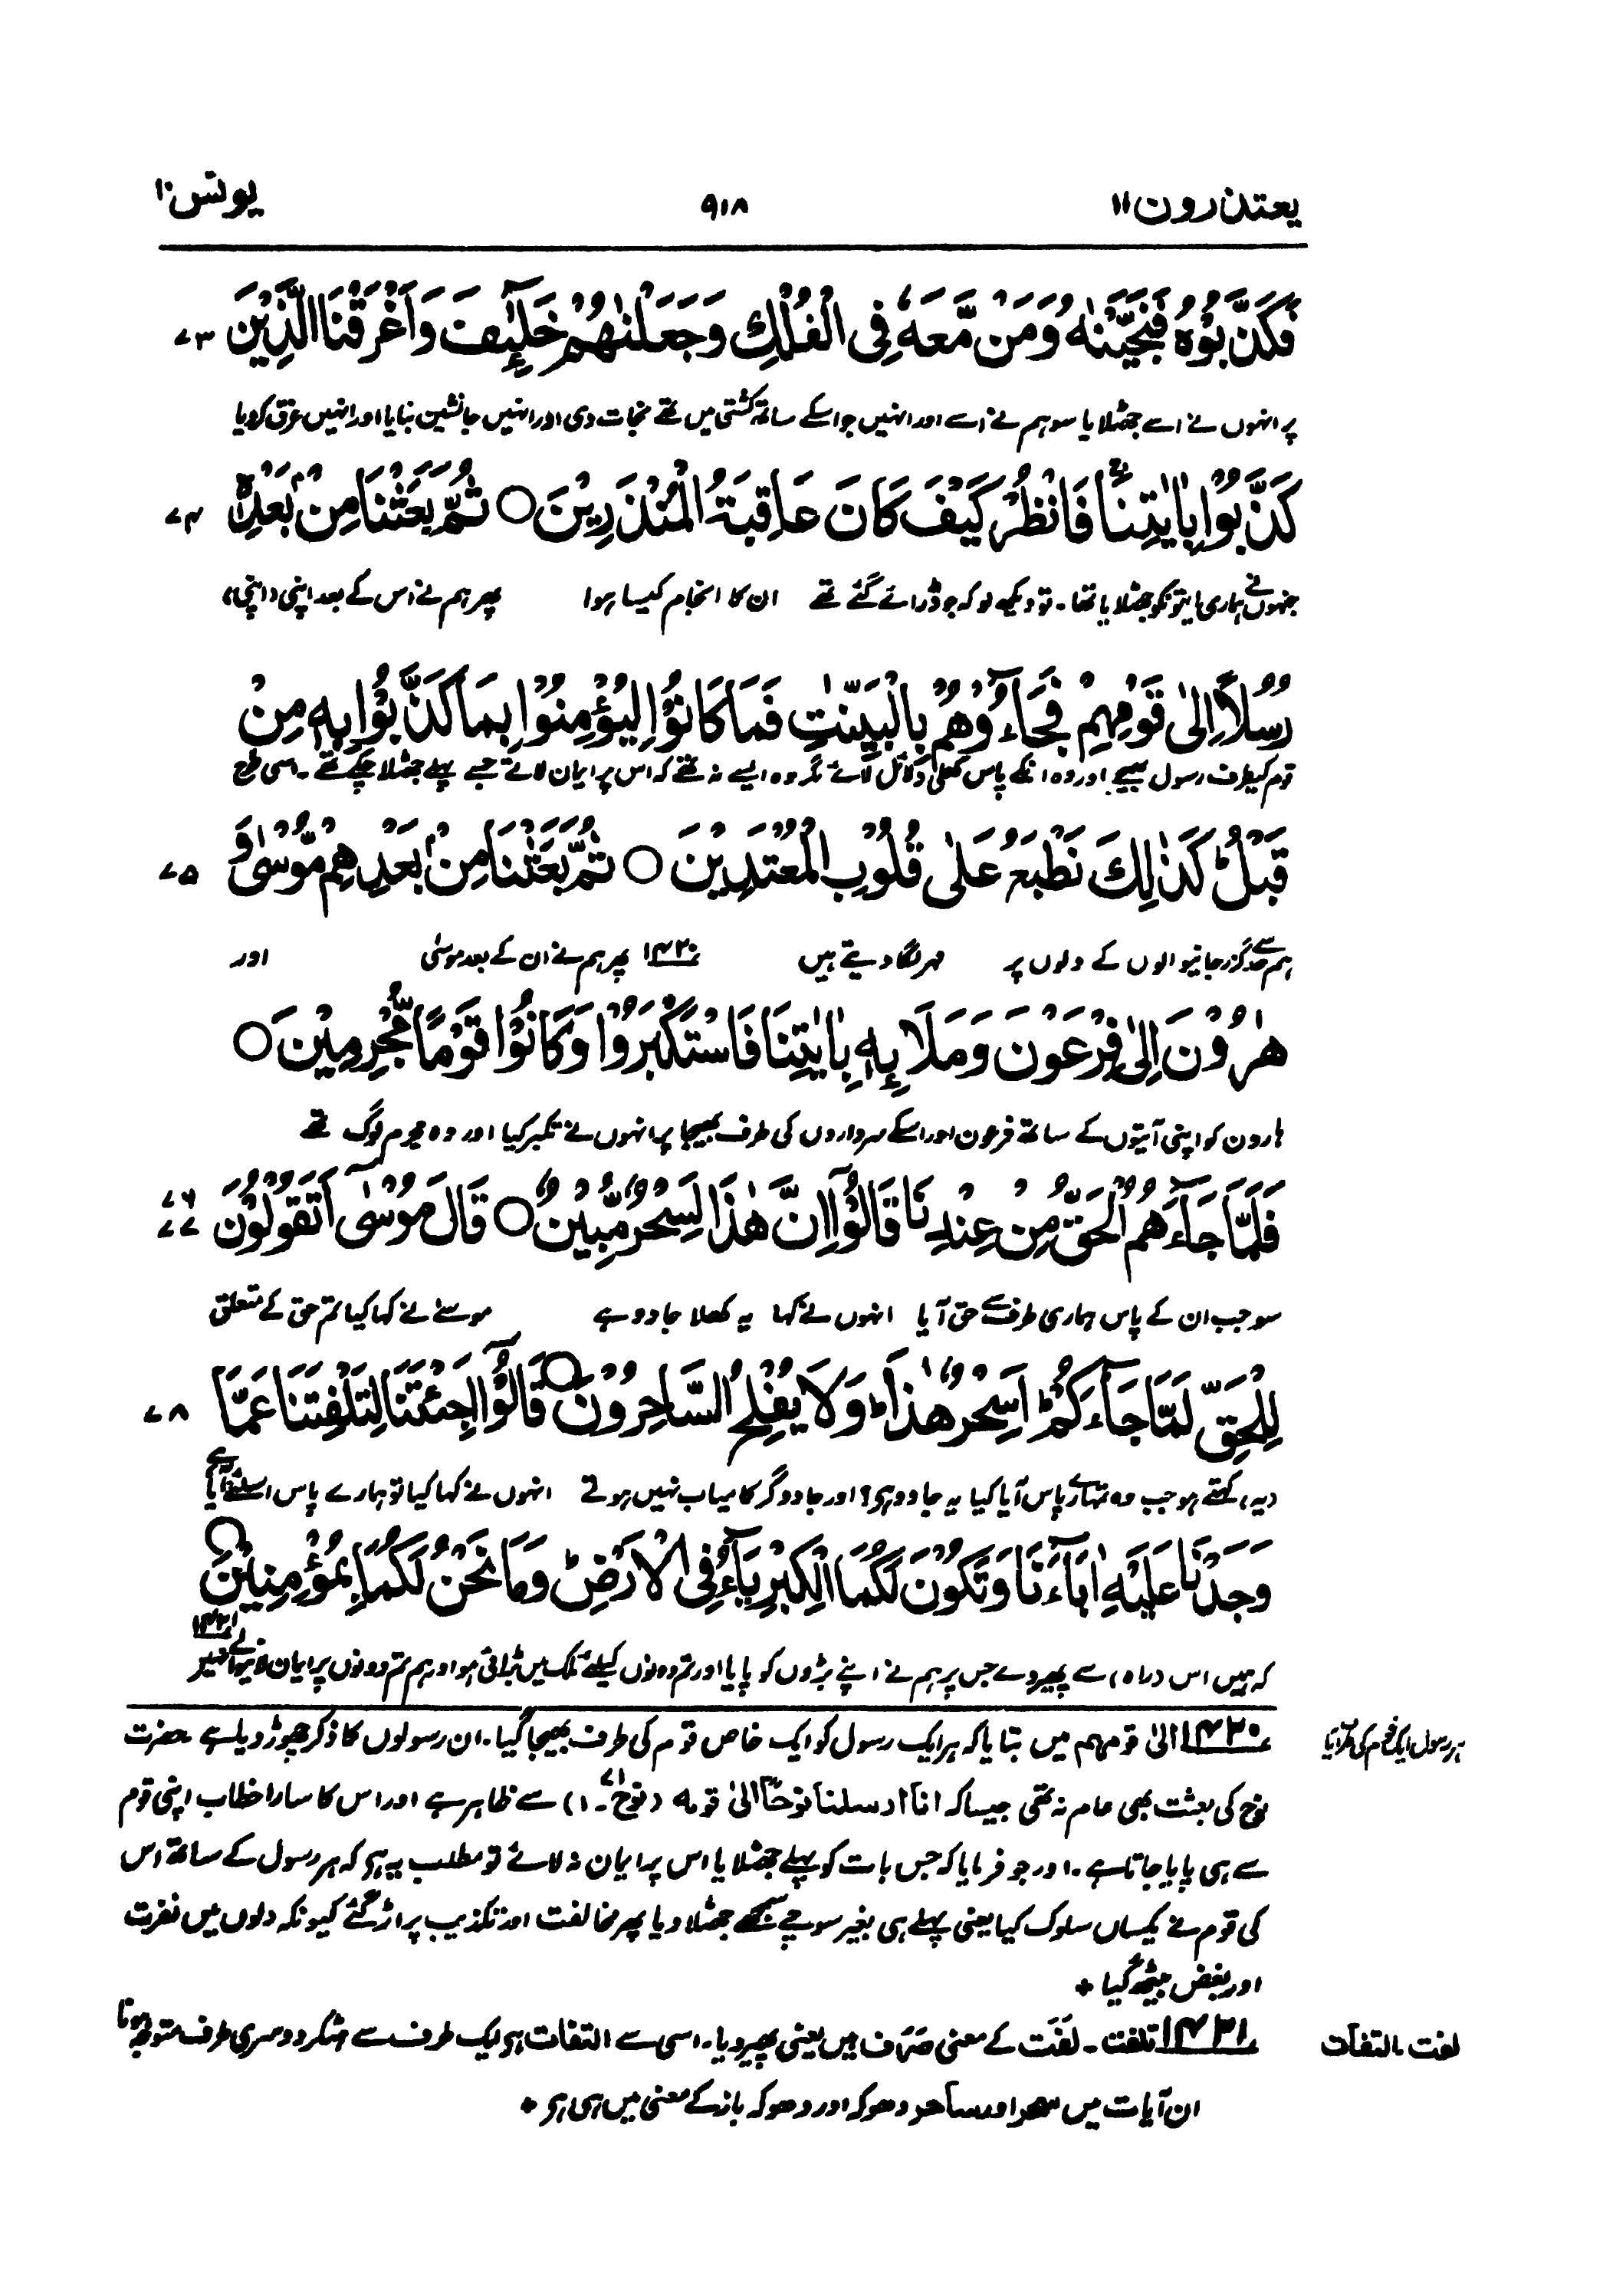 یعتذرون۱۱ ۹۱۸ یونس۱۰
فَكَذَّبُوْهُ فَنَجَّيْنٰهُ وَمَنْ مَّعَهٗ فِى الْفُلْكِ وَجَعَلْنٰهُمْ خَلٰٓئِفَ وَاَغْرَقْنَا الَّذِيْنَ ۷۳
پر انہوں نے اسے جھٹلایا سو ہم نے اسے اور انہیں جو اسکے ساتھ کشتی میں تھے نجات دی اور انہیں جانشین بنایا اور انہیں غرق کردیا
كَذَّبُوْا بِاٰيٰتِنَا ۚ فَانْظُرْ كَيْفَ كَانَ عَاقِبَةُ الْمُنْذَرِيْنَ ○ ثُمَّ بَعَثْنَا مِنْۢ بَعْدِهٖ ۷۴
جنہوں نے ہماری آیتونکو جھٹلایا تھا۔ تو دیکھ لو کہ جو ڈرائے گئے تھے ان کا انجام کیسا ہوا پھر ہم نے اس کے بعد اپنی (اپنی)
رُسُلًا اِلٰى قَوْمِهِمْ فَجَآءُوْهُمْ بِالْبَيِّنٰتِ فَمَا كَانُوْا لِيُؤْمِنُوْا بِمَا كَذَّبُوْا بِهٖ مِنْ
قوم کیطرف رسول بھیجے اور وہ انکے پاس کھلی دلائل لائے مگر وہ ایسے نہ تھے کہ اس پر ایمان لاتے جسے پہلے جھٹلا چکے تھے۔ اسی طرح
قَبْلُ ؕ كَذٰلِكَ نَطْبَعُ عَلٰى قُلُوْبِ الْمُعْتَدِيْنَ ○ ثُمَّ بَعَثْنَا مِنْۢ بَعْدِهِمْ مُّوْسٰى وَ ۷۵
ہم حد سے گزر جانیوالوں کے دلوں پر مہر لگا دیتے ہیں ۱۴۲۰ پھر ہم نے ان کے بعد موسٰی اور
هٰرُوْنَ اِلٰى فِرْعَوْنَ وَمَلَا۟ئِهٖ بِاٰيٰتِنَا فَاسْتَكْبَرُوْا وَكَانُوْا قَوْمًا مُّجْرِمِيْنَ ○
ہارون کو اپنی آیتوں کے ساتھ فرعون اور اسکے سرداروں کی طرف بھیجا پر انہوں نے تکبر کیا اور وہ مجرم لوگ تھے
فَلَمَّا جَآءَهُمُ الْحَقُّ مِنْ عِنْدِنَا قَالُوْٓا اِنَّ هٰذَا لَسِحْرٌ مُّبِيْنٌ ○ قَالَ مُوْسٰٓى اَتَقُوْلُوْنَ ۷۶ ۷۷
سو جب ان کے پاس ہماری طرف سے حق آیا انہوں نے کہا یہ کھلا جادو ہے موسٰے نے کہا کیا تم حق کے متعلق
لِلْحَقِّ لَمَّا جَآءَكُمْ ؕ اَسِحْرٌ هٰذَا ؕ وَلَا يُفْلِحُ السَّاحِرُوْنَ ○ قَالُوْٓا اَجِئْتَنَا لِتَلْفِتَنَا عَمَّا ۷۸
(یہ) کہتے ہو جب وہ تمہارے پاس آیا کیا یہ جادو ہی؟ اور جادوگر کامیاب نہیں ہوتے انہوں نے کہا کیا تو ہمارے پاس اسلئے آیا ہے
وَجَدْنَا عَلَيْهِ اٰبَآءَنَا وَتَكُوْنَ لَكُمَا الْكِبْرِيَآءُ فِى الْاَرْضِ ؕ وَمَا نَحْنُ لَكُمَا بِمُؤْمِنِيْنَ ○
کہ ہمیں اس (راہ) سے پھیردے جس پر ہم نے اپنے بڑوں کو پایا اور تم دونوں کیلئے ملک میں بڑائی ہو اور ہم تم دونوں پر ایمان لانیوالے نہیں ۱۴۲۱
۱۴۲۰ الیٰ قومہم میں بتایا کہ ہر ایک رسول کو ایک خاص قوم کی طرف بھیجا گیا۔ ان رسولوں کا ذکر چھوڑ دیا ہے حضرت
ہر رسول ایک قوم کی طرف آیا
نوح کی بعثت بھی عام نہ تھی جیسا کہ انا ارسلنا نوحاً الیٰ قومہ (نوح ۷۱۔ ۱) سے ظاہر ہے اور اس کا سارا خطاب اپنی قوم
سے ہی پایا جاتا ہے۔ اور جو فرمایا کہ جس بات کو پہلے جھٹلایا اس پر ایمان نہ لائے تو مطلب یہ ہی کہ ہر رسول کے ساتھ اس
کی قوم نے یکساں سلوک کیا یعنی پہلے ہی بغیر سوچے سمجھے جھٹلا دیا پھر مخالفت اور تکذیب پر اڑ گئے کیونکہ دلوں میں نفرت
اور بغض بیٹھ گیا +
۱۴۲۱ تلفت۔ لَفَت کے معنی صَرَف ہیں یعنی پھیر دیا۔ اسی سے التفات ہی ایک طرف سے ہٹکر دوسری طرف متوجہ ہونا
لفت۔ التفات
ان آیات میں سحر اور ساحر دھوکہ اور دھوکہ باز کے معنی میں ہی ہی +